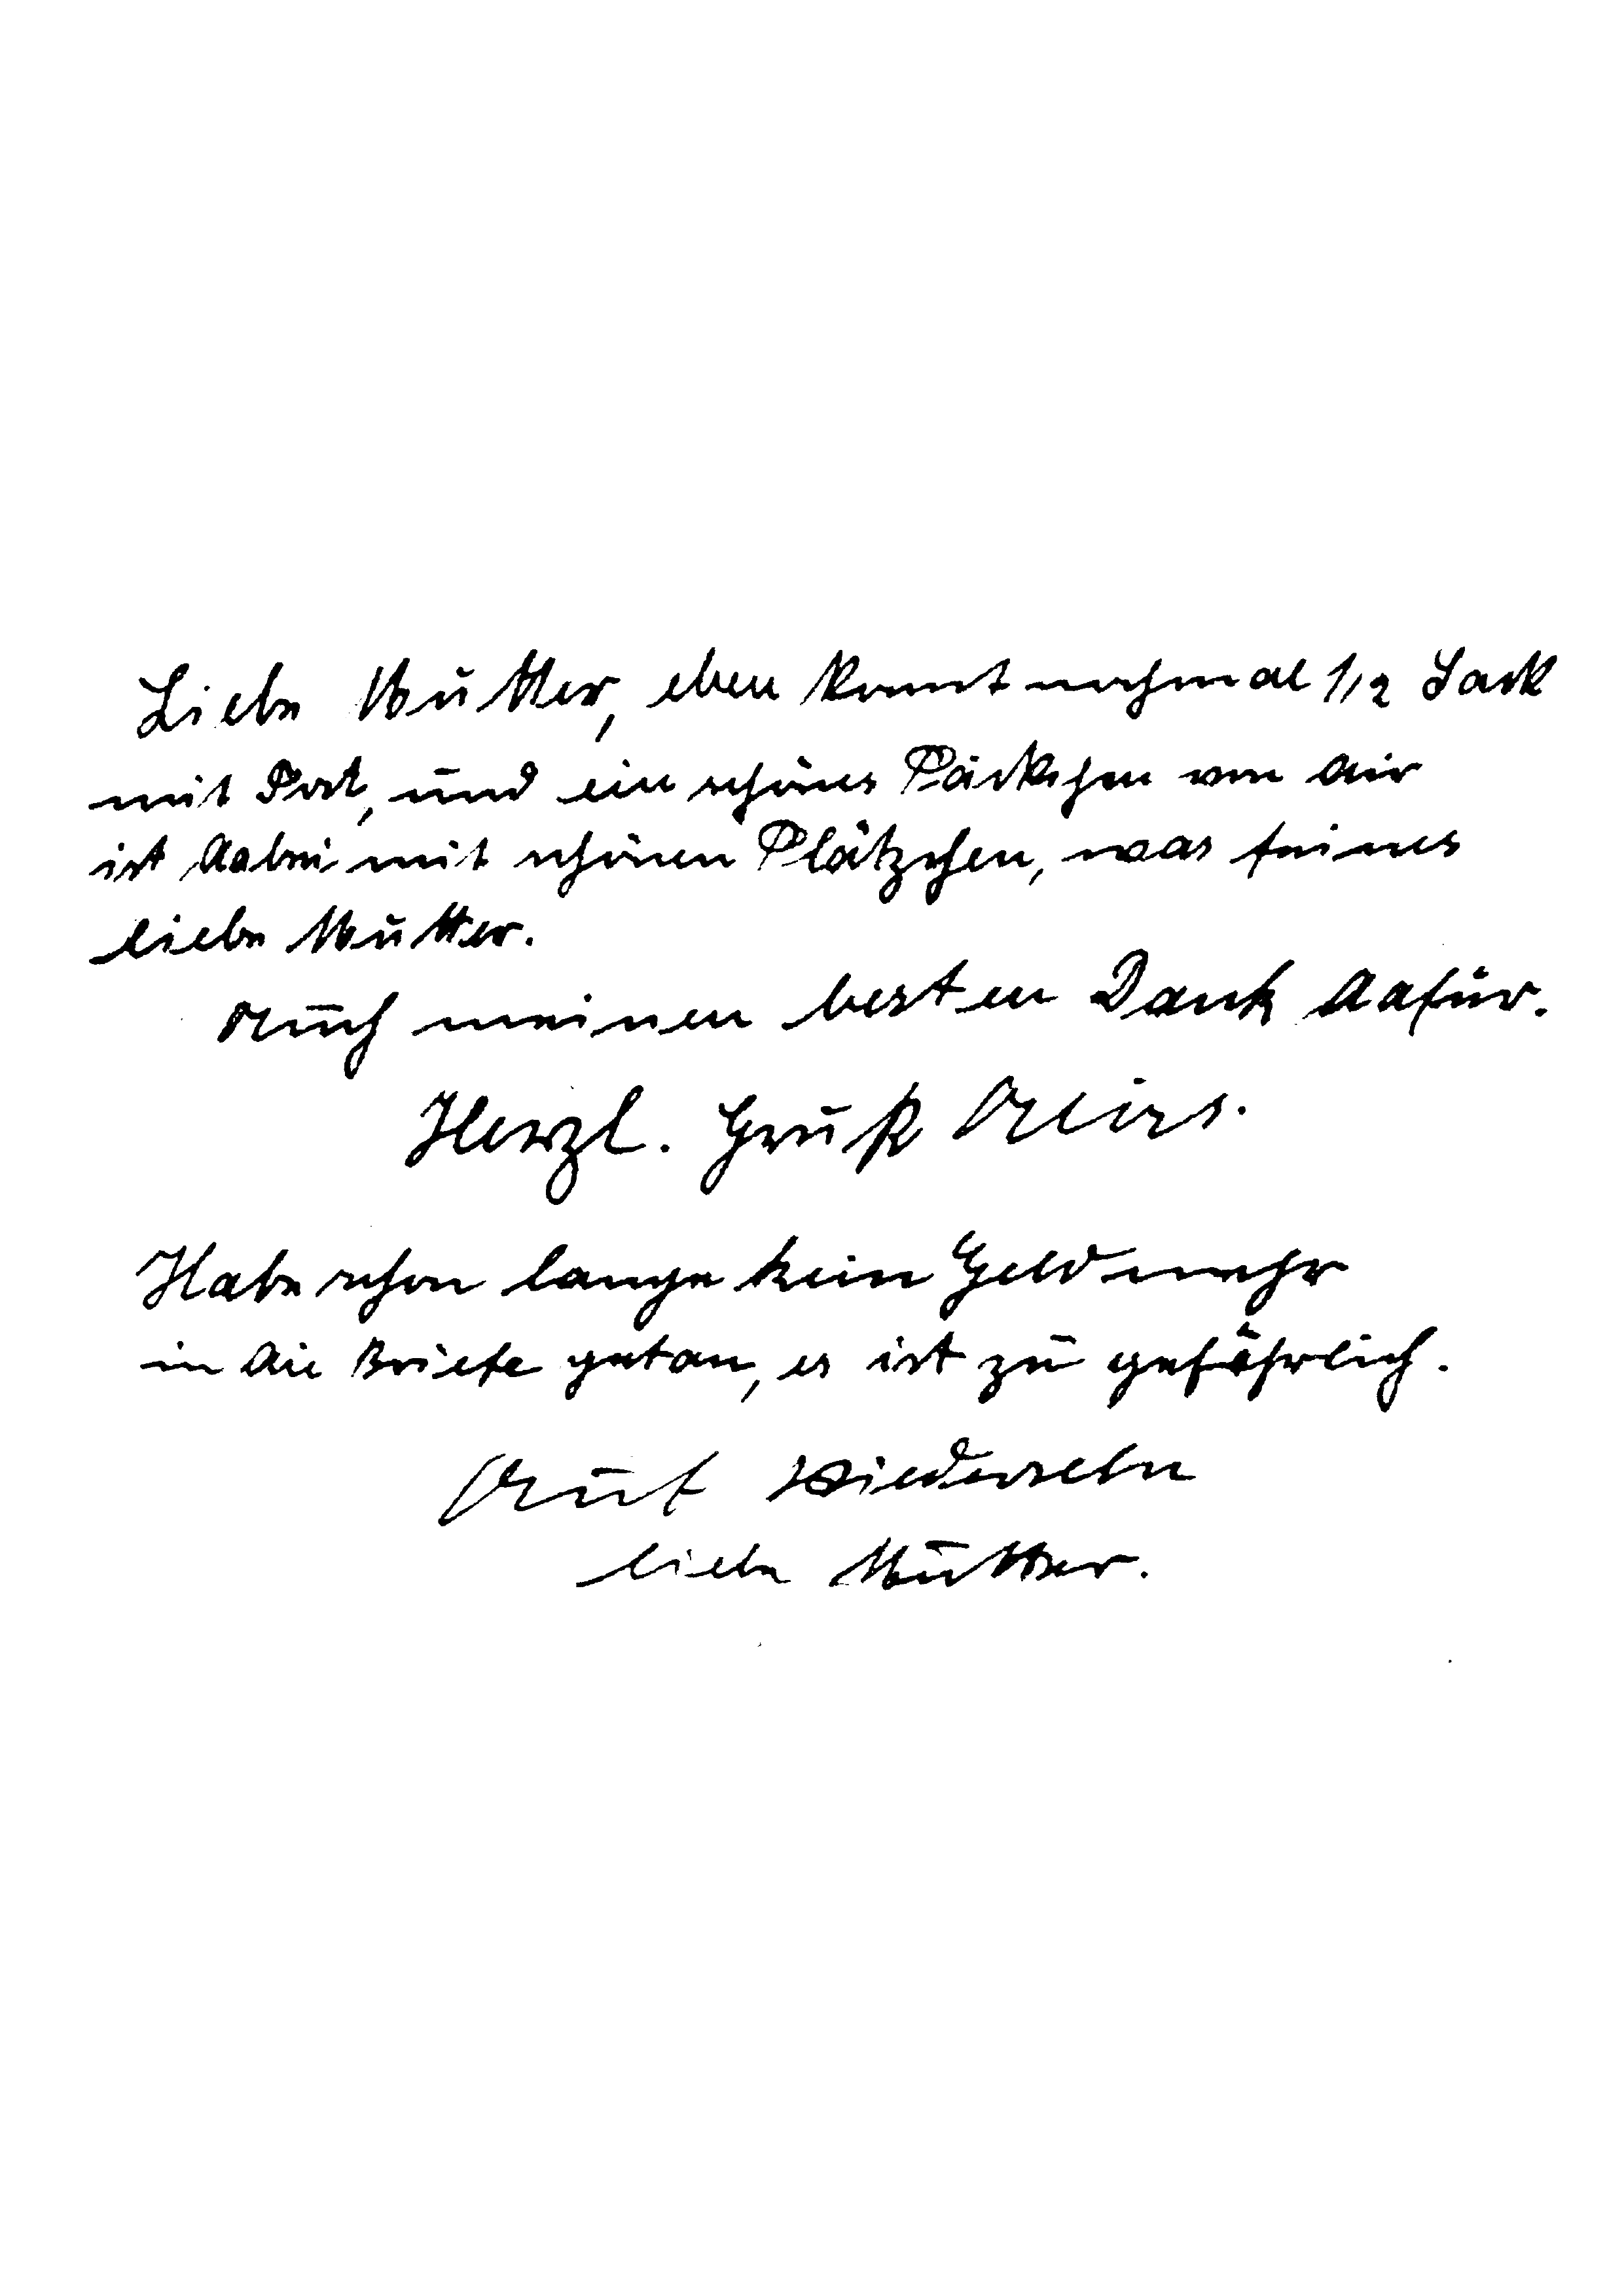 Liebe Mutter, eben kommt nochmal 1/2 Sack
mit Post, und ein schönes Päckchen von dir
ist dabei mit schönen Plätzchen, was feines
liebe Mutter.
Auch meinen besten Dank dafür.
Herzl. Gruß
Habe schon lange kein Geld mehr
in die Briefe getan, es ist zu gefährlich.
Auf Wiedersehn
liebe Mutter.